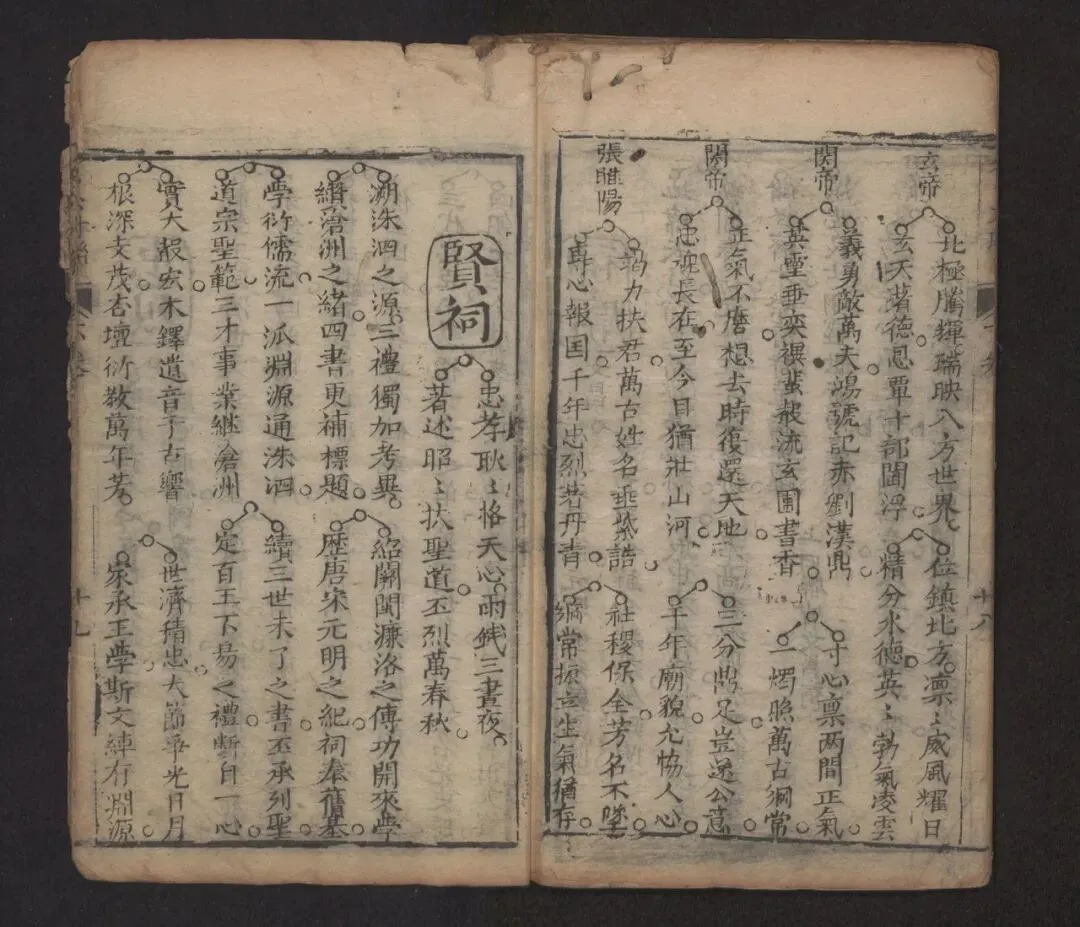 玄帝
北極騰輝瑞映八方世界 位鎮北方凛〻威風耀日
玄天著德恩覃十部閻浮 精分水德英〻勃氣凌雲
関帝
義勇敵萬夫鴻號記赤劉漢鼎 寸心禀两間正氣
英霊垂奕禩蜚敨流玄圃書香 一燭照萬古綱常
関帝
正氣不磨想去時復還天地 三分鼎足豈遂公意
忠魂長在至今日猶壯山河 千年廟貌允恊人心
張睢陽
竭力扶君萬古姓名垂紫誥 社稷保全芳名不墜
專心報国千年忠烈若丹青 綱常振立生氣猶存
十八
賢祠
忠孝耿〻格天心兩銭三晝夜
著述昭〻扶聖道丕烈萬春秋
溯洙泗之源三禮獨加考異 紹關閩濂洛之傳功開來學
纘滄洲之緒四書更補標題 歴唐宋元明之紀祠奉舊基
學衍儒流一派淵源通洙泗 續三世未了之書丕承列聖
道宗聖範三才事業継滄洲 定百王下易之禮斷自一心
實大報宏木鐸遺音千古響 世濟積忠大節爭光日月
根深支茂杏壇衍教萬年芳 家承王學斯文練有淵源
十九